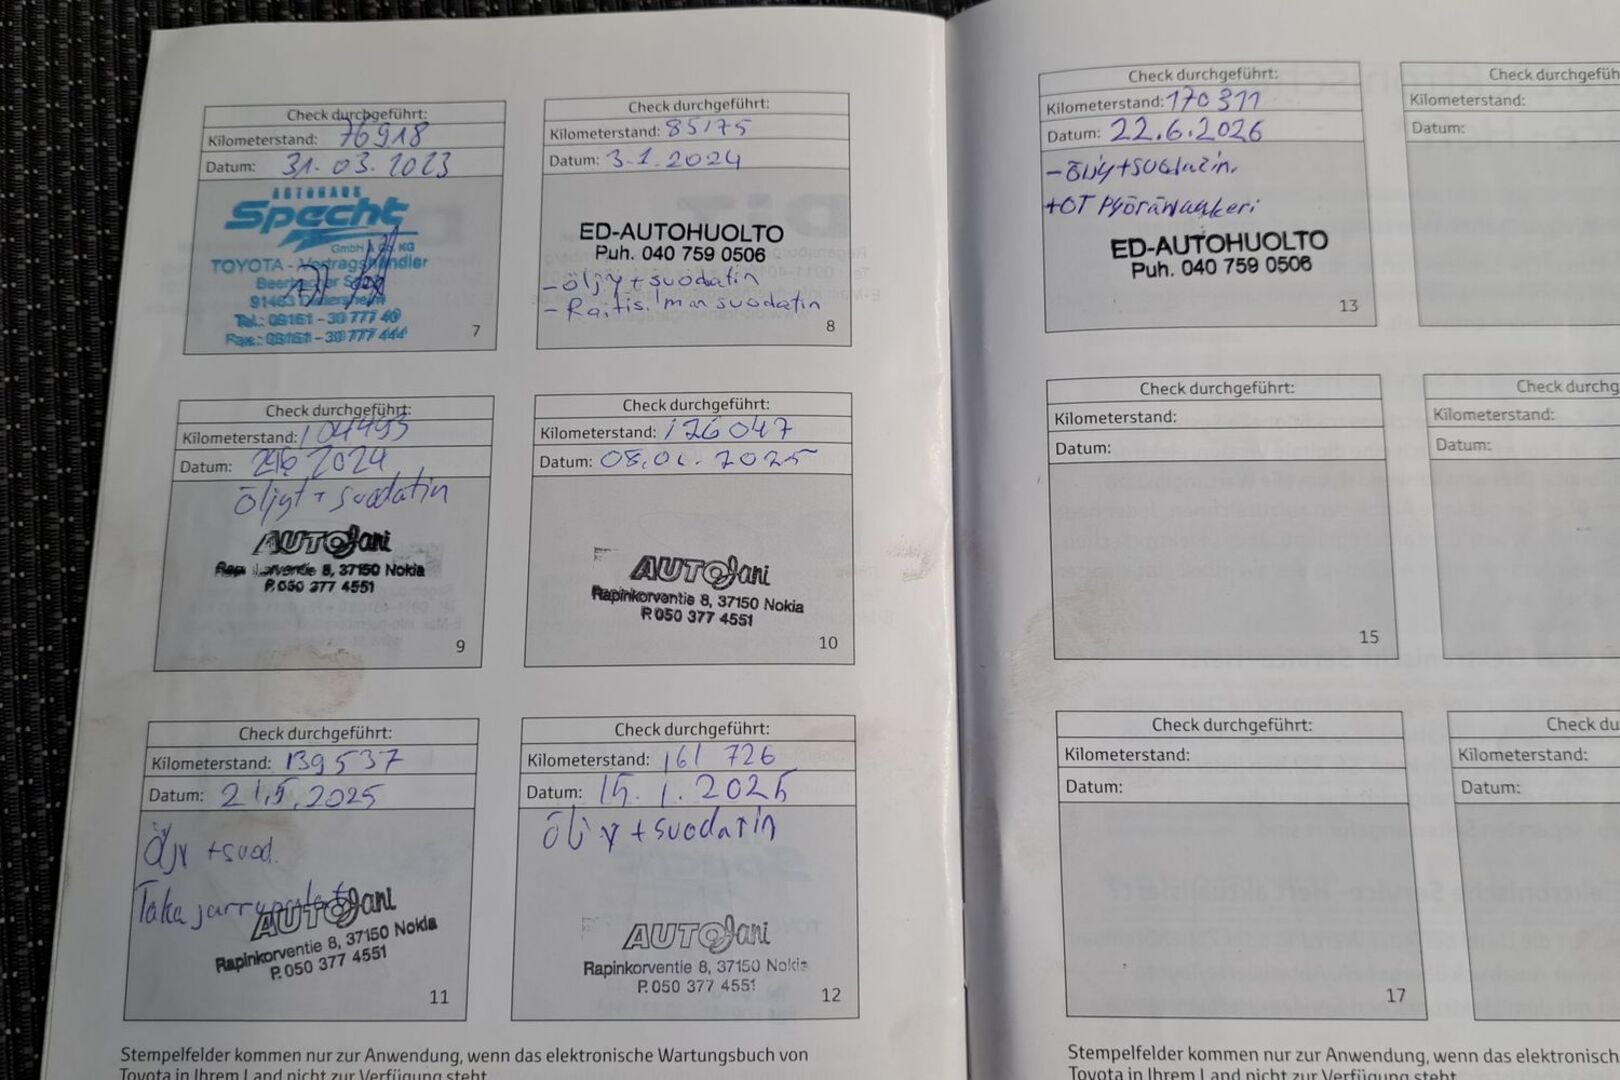 Check durchgeführt:
Kilometerstand: 76918
Datum: 31.03.2023
AUTOHAUS
Specht
GmbH & Co. KG
TOYOTA - Vertragshändler
91463 Dietersheim
Tel.: 09161 - 30 777 40
Fax.: 09161 - 30 777 444
7
Check durchgeführt:
Kilometerstand: 85175
Datum: 3.1.2024
ED-AUTOHUOLTO
Puh. 040 759 0506
- öljy + suodatin
- Raitis.lman suodatin
8
Check durchgeführt:
Kilometerstand: 104493
Datum: 2024
Öljyt + suodatin
AUTOJani
8, 37150 Nokia
P.050 377 4551
9
Check durchgeführt:
Kilometerstand: 126047
Datum: 2025
AUTOJani
Rapinkorventie 8, 37150 Nokia
P.050 377 4551
10
Check durchgeführt:
Kilometerstand: 139537
Datum: 21.5.2025
Öljy + suod.
Taka
AUTOJani
Rapinkorventie 8, 37150 Nokia
P.050 377 4551
11
Check durchgeführt:
Kilometerstand: 161 726
Datum: 15.1.
Öljy + suodatin
AUTOJani
Rapinkorventie 8, 37150 Nokia
P.050 377 4551
12
Stempelfelder kommen nur zur Anwendung, wenn das elektronische Wartungsbuch von
Toyota in Ihrem Land nicht zur Verfügung steht.
Check durchgeführt:
Kilometerstand: 170311
Datum: 22.6.2026
- Öljy + suodatin.
+ OT
ED-AUTOHUOLTO
Puh. 040 759 0506
13
Check durchgefüh
Kilometerstand:
Datum:
Check durchgeführt:
Kilometerstand:
Datum:
15
Check durchg
Kilometerstand:
Datum:
Check durchgeführt:
Kilometerstand:
Datum:
17
Check du
Kilometerstand:
Datum:
Stempelfelder kommen nur zur Anwendung, wenn das elektronisch
Toyota in Ihrem Land nicht zur Verfügung steht.